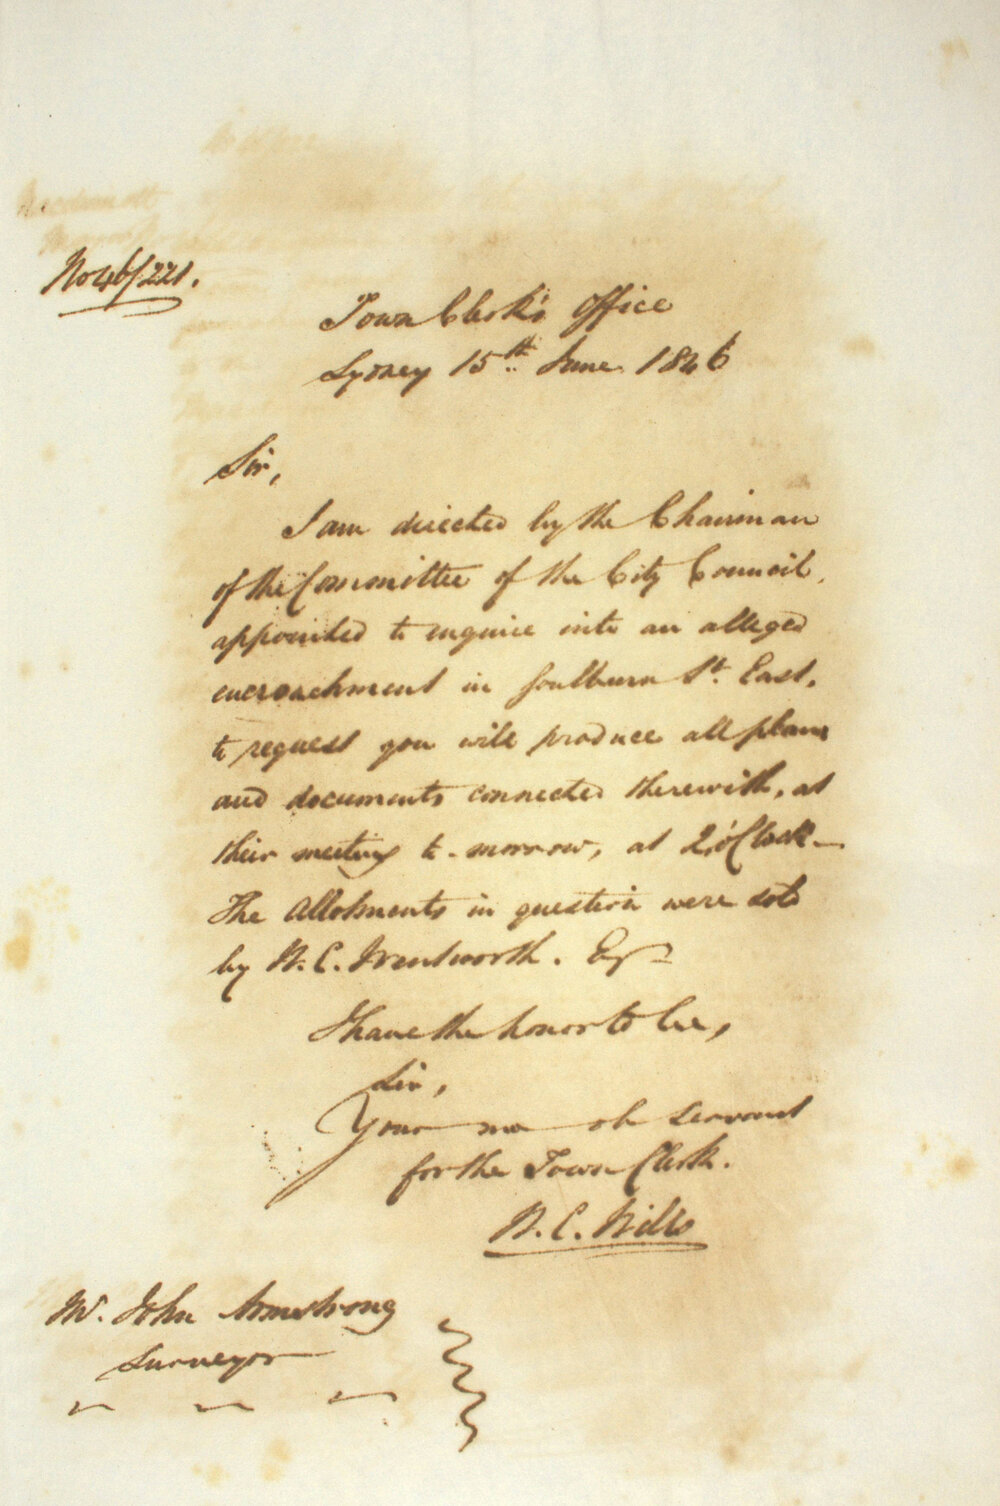 No 46/221.
Town Clerk's Office
Sydney 15th June 1846
Sir,
I am directed by the Chairman
of the Committee of the City Council,
appointed to enquire into an alleged
encroachment in Goulburn St. East,
to request you will produce all plans
and documents connected therewith, at
their meeting to-morrow, at 2 o'Clock_
The Allotments in question were sold
by W. C. Wentworth. Esq
I have the honor to be,
Sir,
Your mo ob servant
for the Town Clerk.
W. C. Wills
Mr. John Armstrong
Surveyor